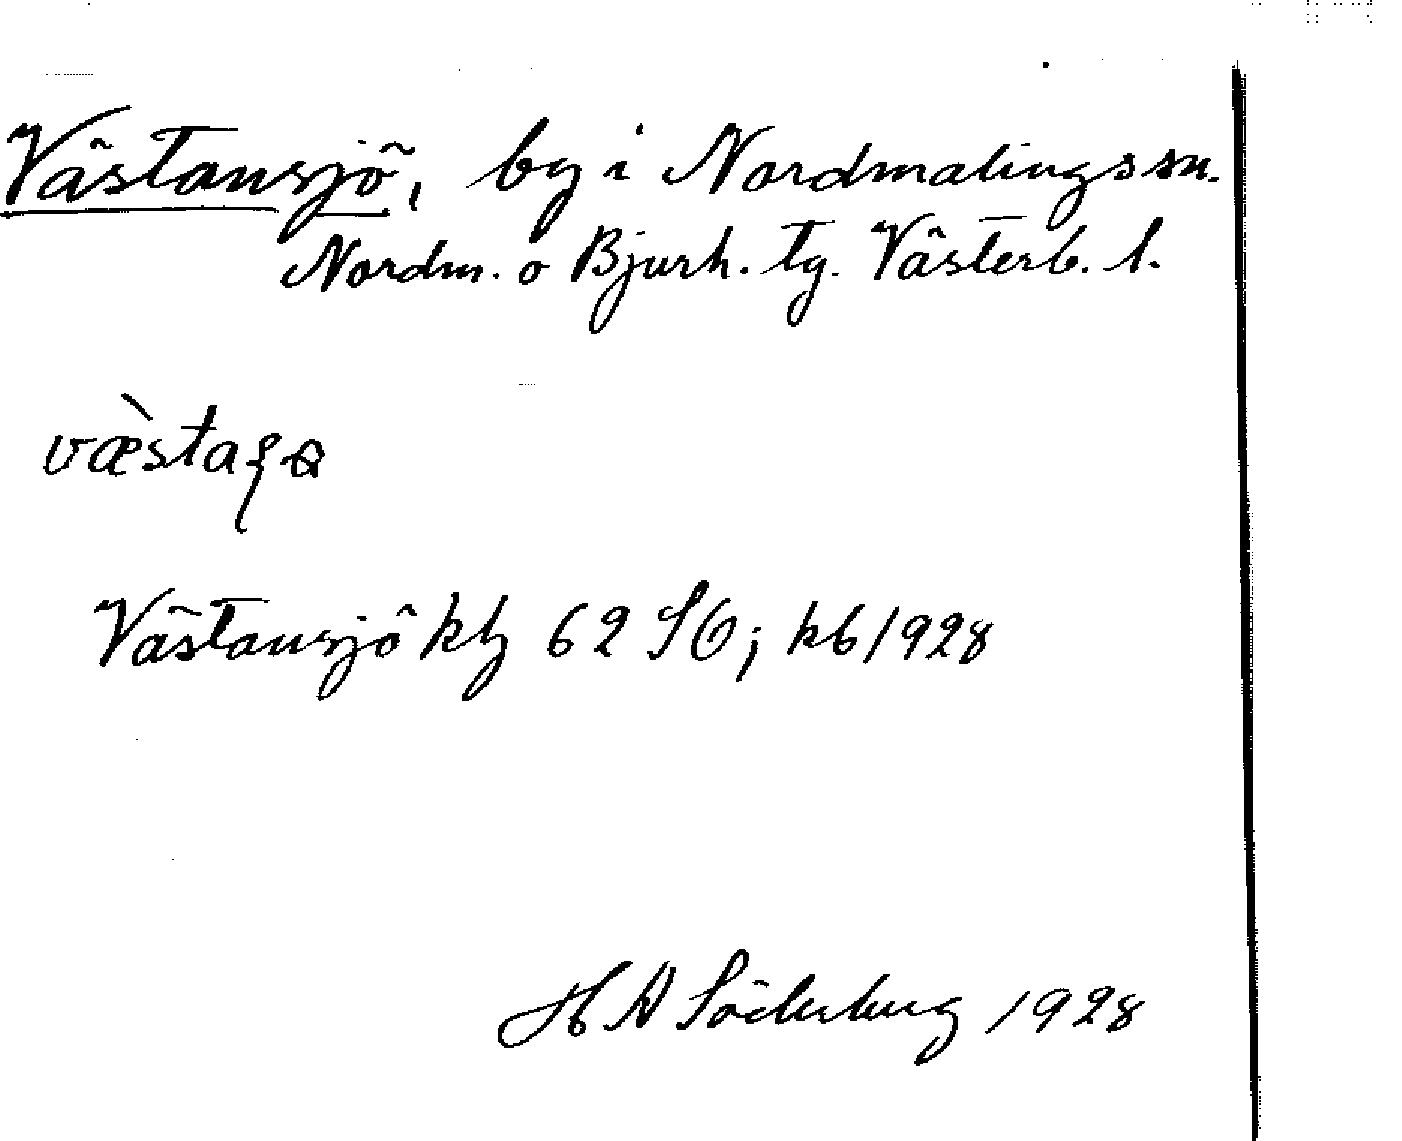 Västansjö, by i Nordmalings sn.
Nordm. o Bjurh. tg. Västerb. l.
Västansjö kbg 62 SO; kb 1928
H A Söderberg 1928